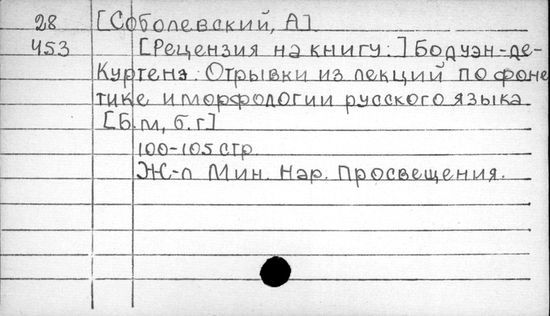 28 [Соболевский, А].
453 [Рецензия на книгу:] Бодуэн-де-
Куртенэ. Отрывки из лекций по фоне
тике и морфологии русского языка
[Б.м, б.г]
100-105 стр.
Ж-л Мин. Нар. Просвещения.